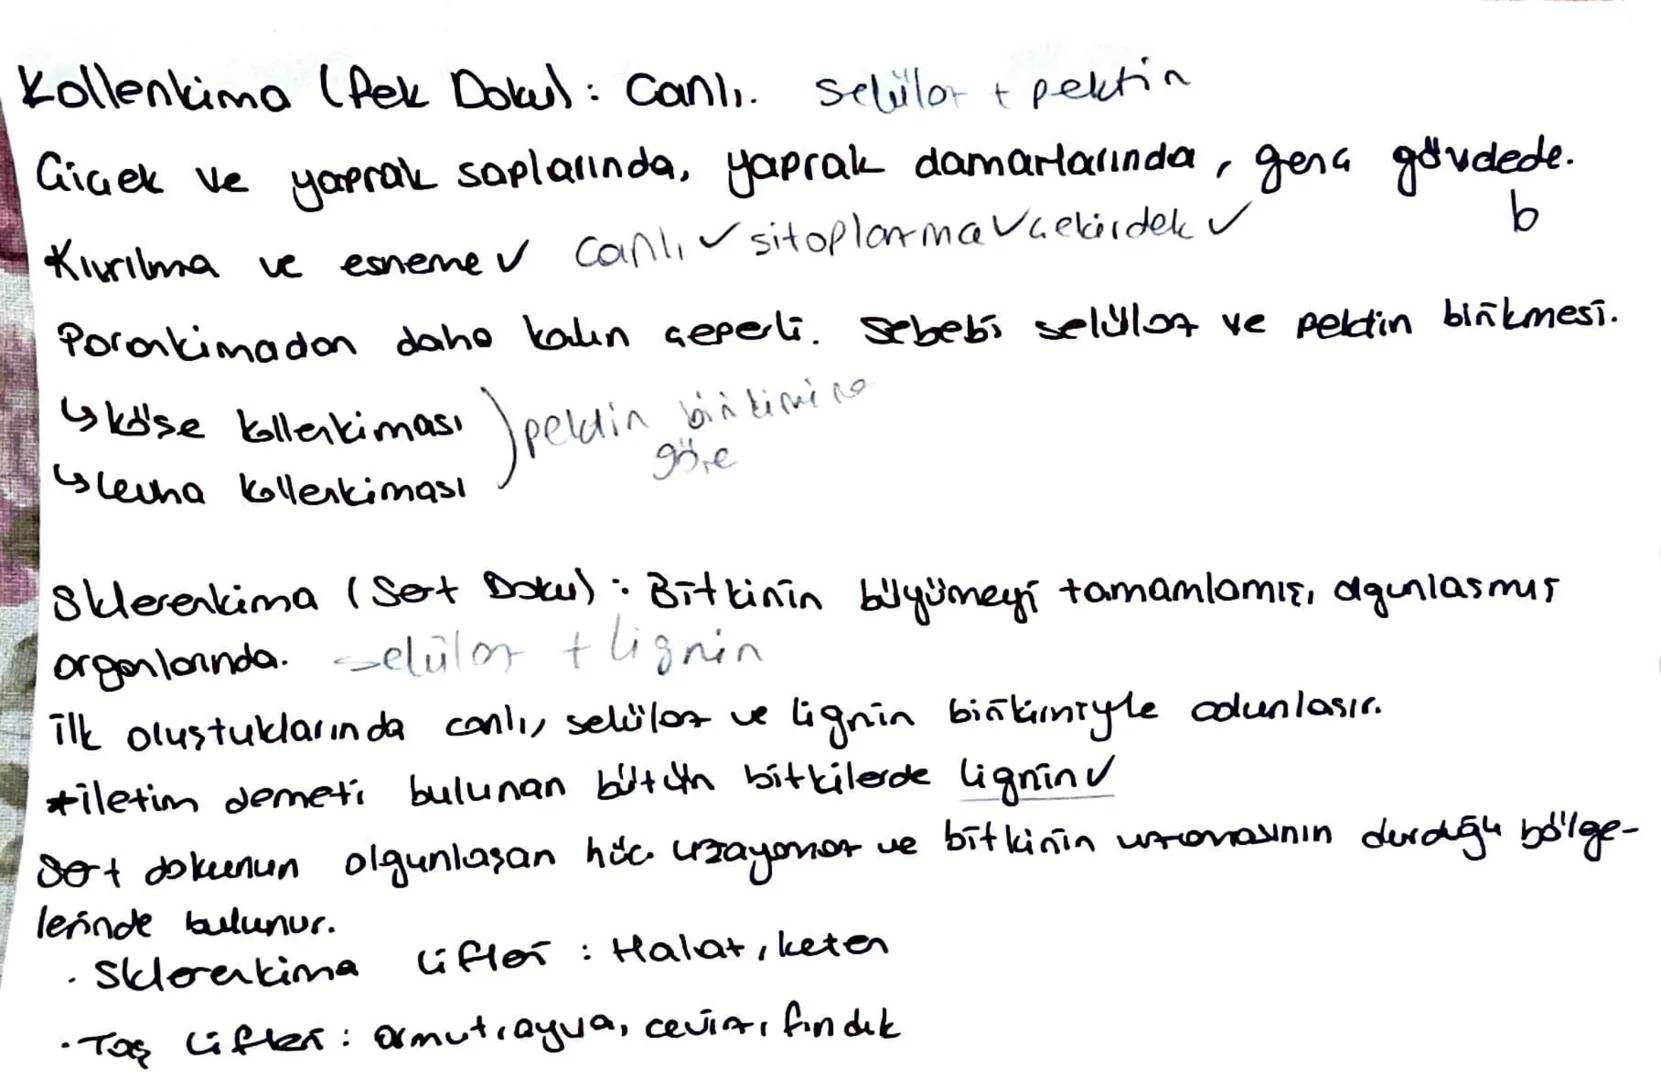 Kollenkima (Pek Doku) : Canlı. Selüloz + pektin
Çiçek ve yaprak saplarında, yaprak damarlarında, genç gövdede.
b
Kıvrılma ve esneme ✓ Canlı ✓ sitoplazma ✓ çekirdek ✓
Parankimadan daha kalın çeperli. Sebebi selüloz ve pektin birikmesi.
↳ köşe kollenkiması ) pektin birikimine
göre
↳ levha kollenkiması
Sklerenkima (Sert Doku) : Bitkinin büyümeyi tamamlamış, olgunlaşmış
organlarında. selüloz + lignin
İlk oluştuklarında canlı, selüloz ve lignin birikimiyle odunlaşır.
*iletim demeti bulunan bütün bitkilerde lignin ✓
Sert dokunun olgunlaşan hüc. uzayamaz ve bitkinin uzamasının durduğu bölge-
lerinde bulunur.
· Sklerenkima Lifleri : Halat, keten
· Taş Lifleri : armut, ayva, ceviz, fındık